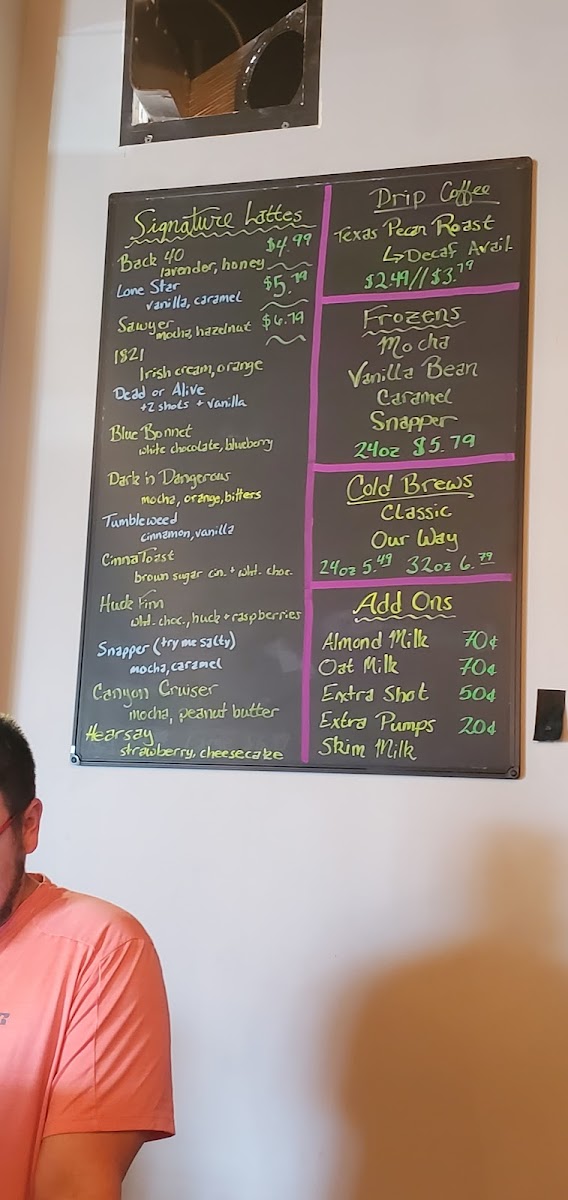 Signature Lattes
Back 40 $4.99
lavender, honey
Lone Star $5.79
vanilla, caramel
Sawyer $6.79
mocha, hazelnut
1821
Irish cream, orange
Dead or Alive
+2 shots + vanilla
Blue Bonnet
white chocolate, blueberry
Dark 'n Dangerous
mocha, orange, bitters
Tumbleweed
cinnamon, vanilla
CinnaToast
brown sugar cin. + wht. choc.
Huck Finn
wht. choc., huck + raspberries
Snapper (try me salty)
mocha, caramel
Canyon Cruiser
mocha, peanut butter
Hearsay
strawberry, cheesecake
Drip Coffee
Texas Pecan Roast
↳Decaf Avail.
$2.49//$3.79
Frozens
Mocha
Vanilla Bean
Caramel
Snapper
24oz $5.79
Cold Brews
Classic
Our Way
24oz 5.49 32oz 6.79
Add Ons
Almond Milk 70¢
Oat Milk 70¢
Extra Shot 50¢
Extra Pumps 20¢
Skim Milk